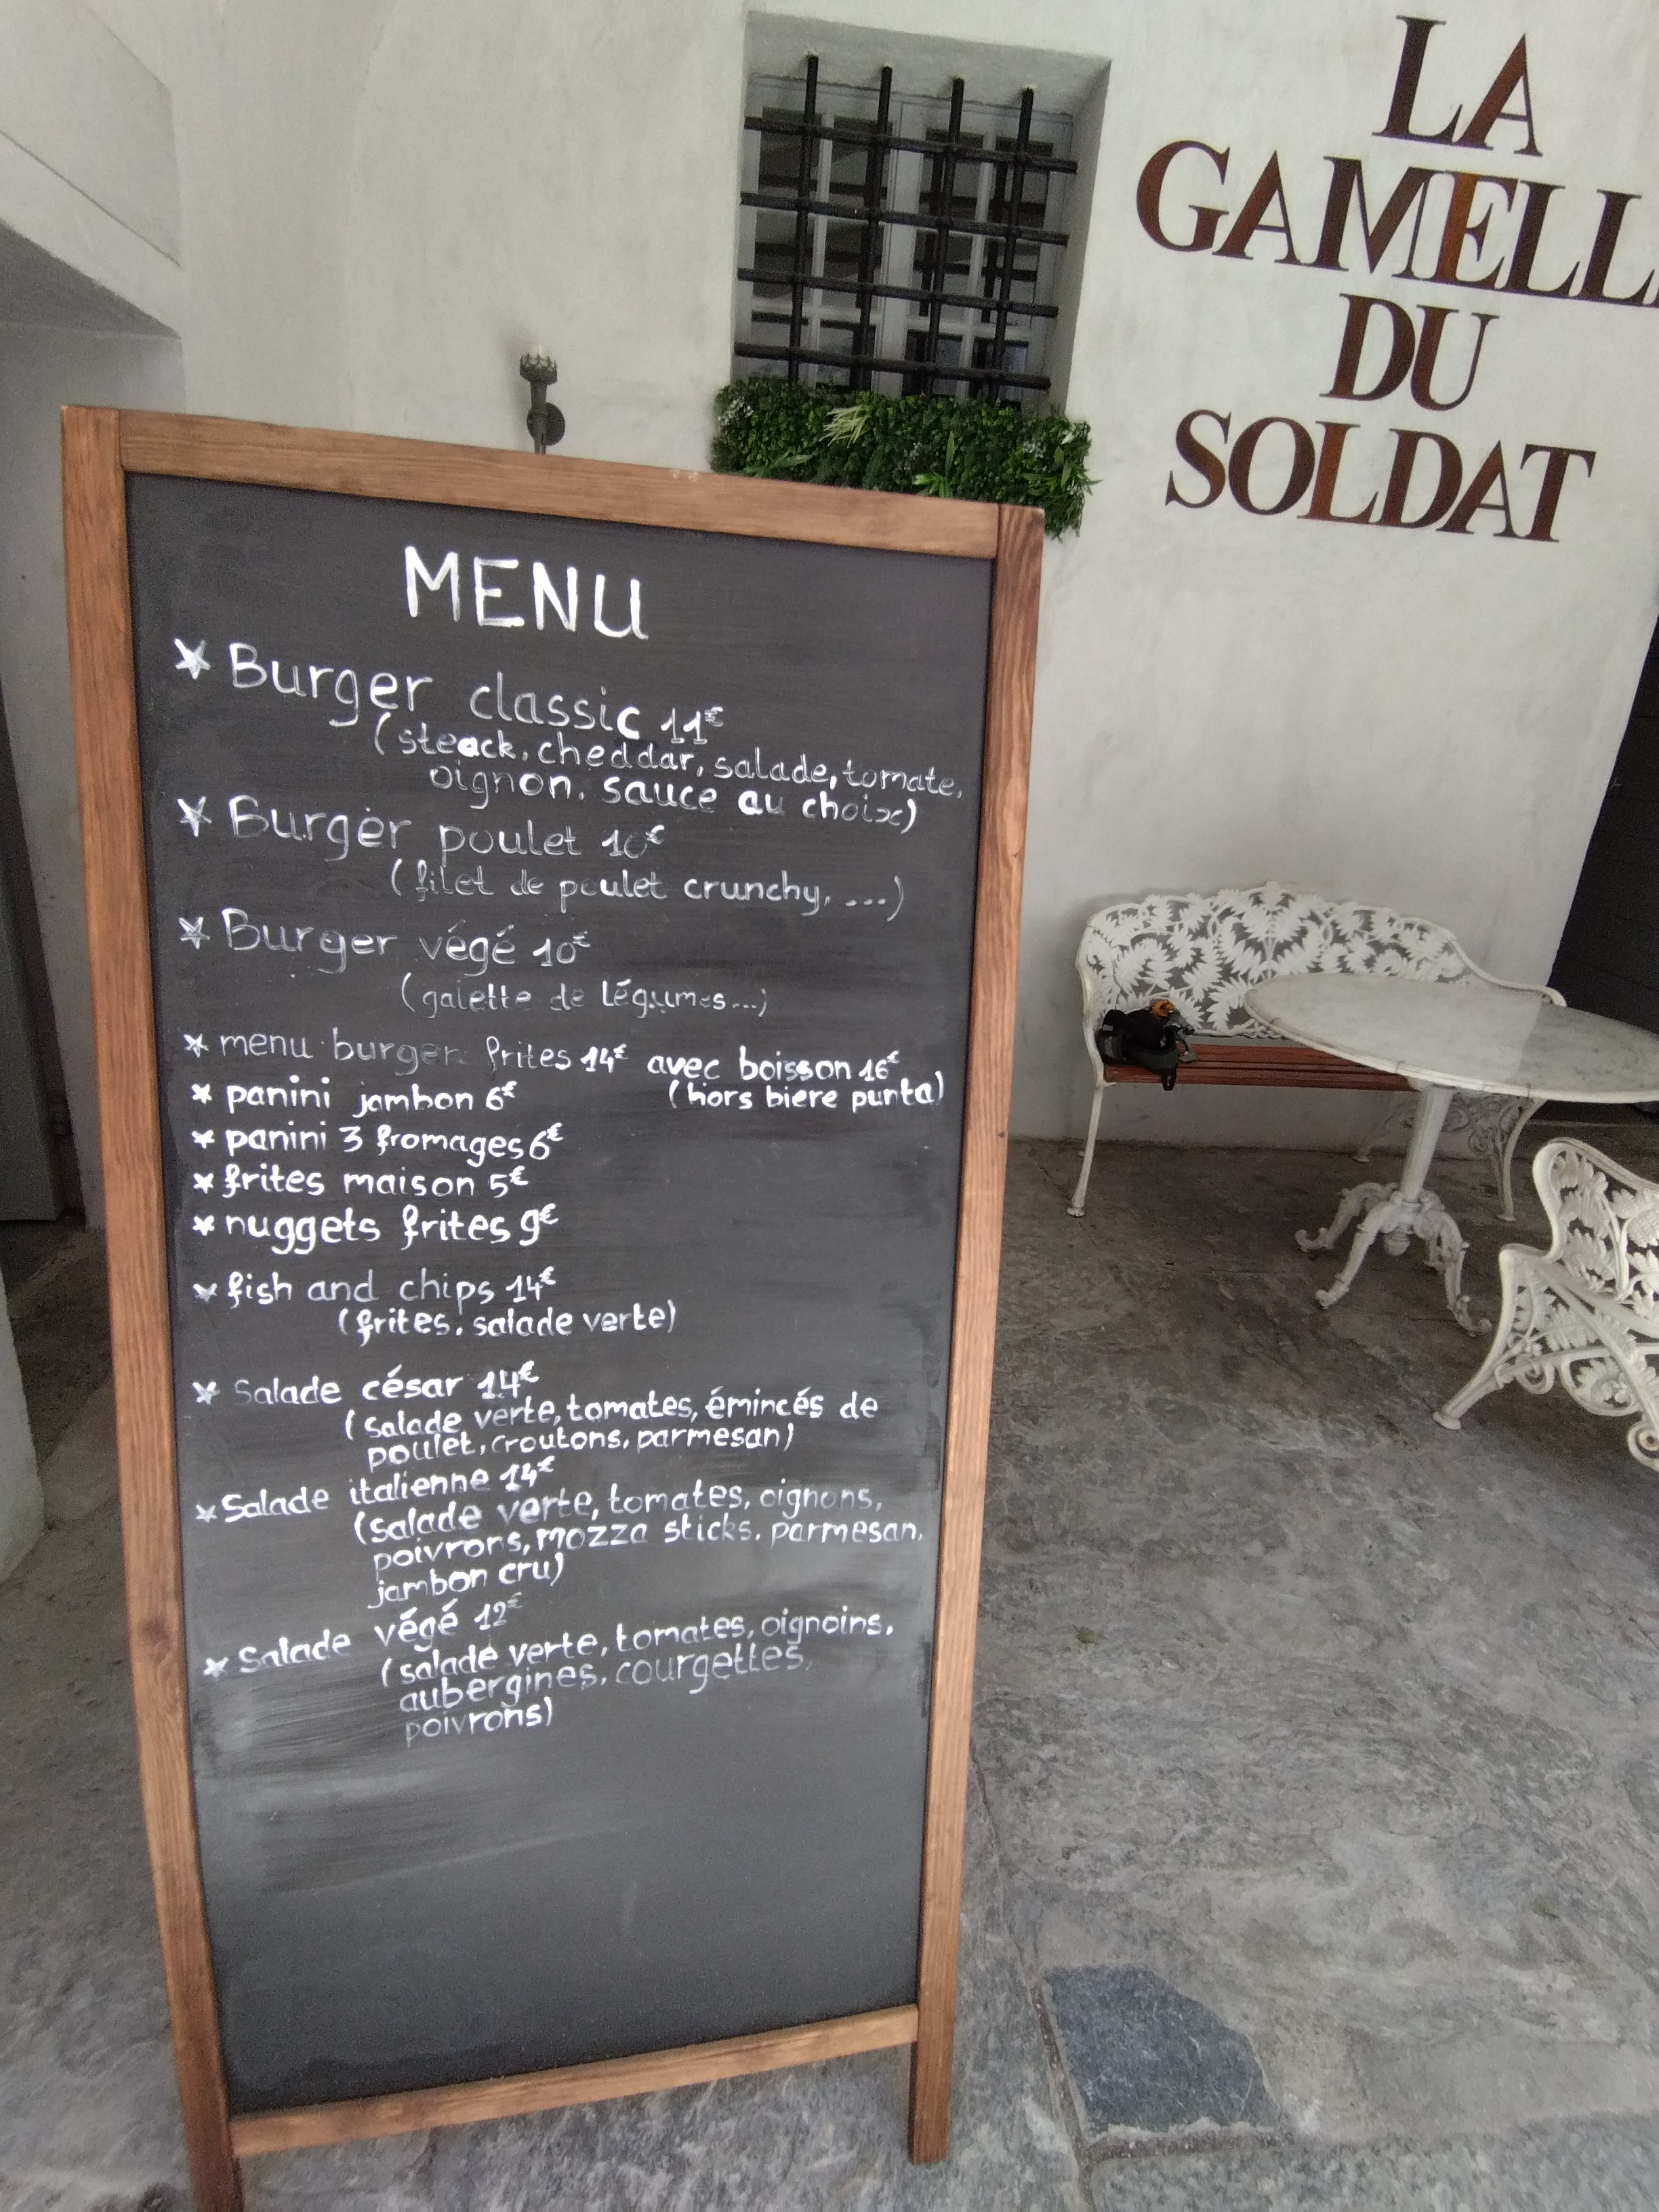 LA
GAMELL
DU
SOLDAT
MENU
* Burger classic 11€
(steack, cheddar, salade, tomate,
oignon, sauce au choix)
* Burger poulet 10€
(filet de poulet crunchy, ...)
* Burger végé 10€
(galette de légumes...)
* menu burger frites 14€ avec boisson 16€
(hors biere punta)
* panini jambon 6€
* panini 3 fromages 6€
* frites maison 5€
* nuggets frites 9€
* fish and chips 14€
(frites, salade verte)
* Salade césar 14€
(salade verte, tomates, émincés de
poulet, croutons, parmesan)
* Salade italienne 14€
(salade verte, tomates, oignons,
poivrons, mozza sticks, parmesan,
jambon cru)
* Salade végé 12€
(salade verte, tomates, oignoins,
aubergines, courgettes,
poivrons)